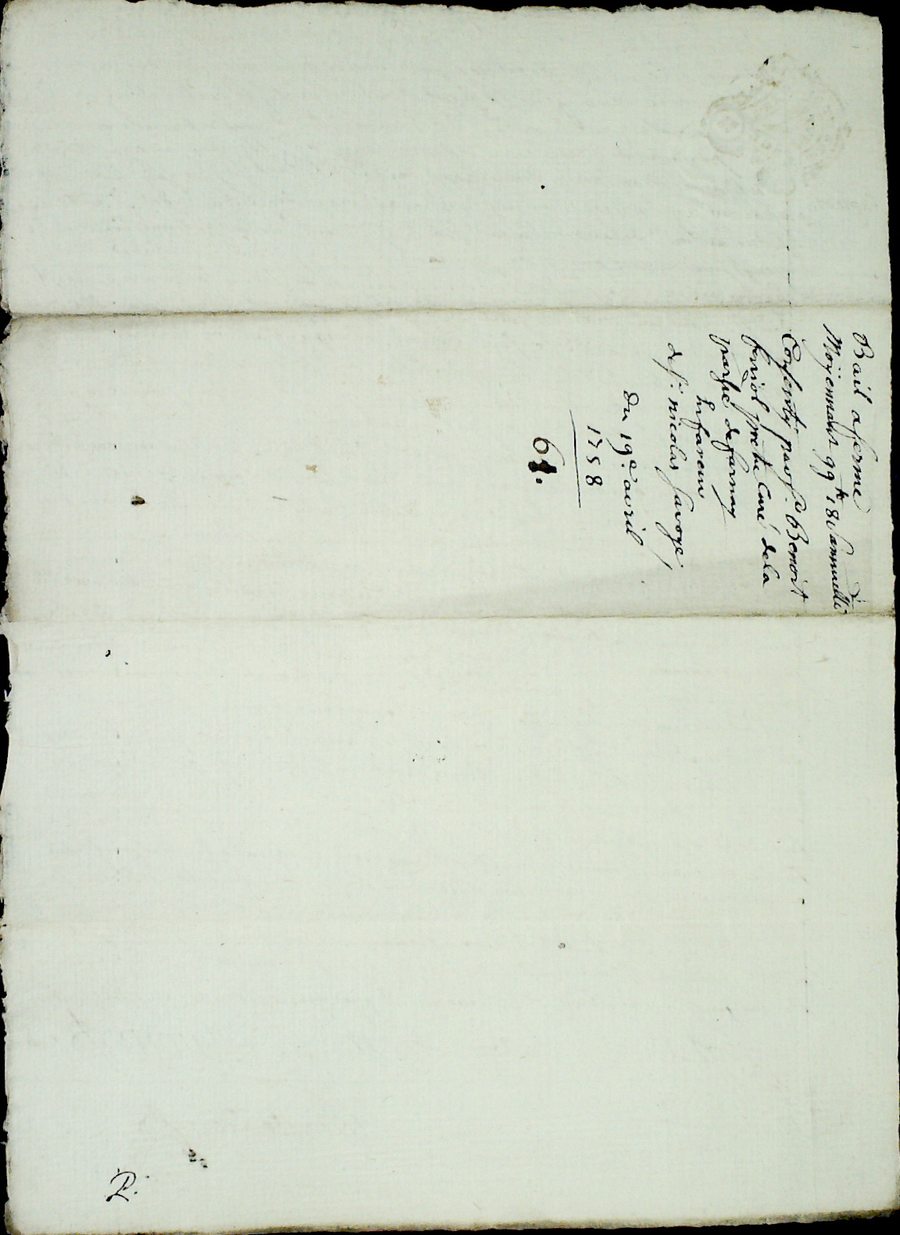 Bail a ferme
Moyennant 99 tt 18 s annuelle
Consenty par Sr Benoist
prestre Curé de la
parse de farnay
En faveur
de Sr. nicolas Savoye
Du 19e. avril
1758
61.
P.